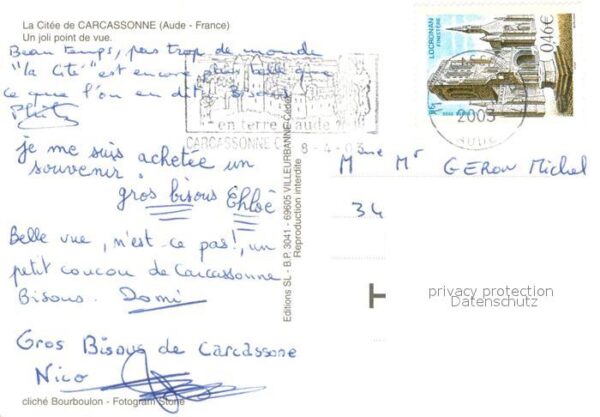 La Citée de CARCASSONNE (Aude - France)
Un joli point de vue.
Beau temps, pas trop de monde
"la Cité" est encore plus belle que
ce que l'on en dit. Bisous
je me suis achetée un
souvenir.
gros bisous Chloë
Belle vue, n'est-ce pas!, un
petit coucou de Carcassonne
Bisous. Domi
Gros Bisous de Carcassone
Nico
cliché Bourboulon - Fotogram Stone
Editions SL - B.P. 3041 - 69605 VILLEURBANNE Cedex
Reproduction interdite
en terre d'aude
CARCASSONNE C
8-4-03
LOCRONAN
FINISTÈRE
0,46€
RF
2003
AUDE
Mme Mr GERON Michel
34
privacy protection
Datenschutz